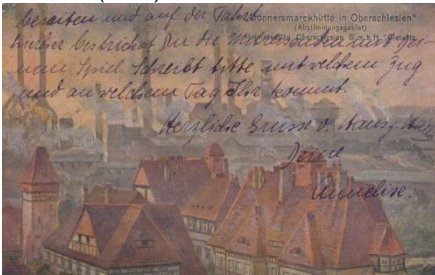 bereiten und auf der Fahrt
"Donnersmarckhütte in Oberschlesien"
(Abstimmungsgebiet)
Oberschlesien G.m.b.H. Gleiwitz
hierher bestrickst Du die mit Dei-
nem Spiel. Schreibt bitte mit welchem Zug
und an welchem Tag Ihr kommt.
Herzliche Grüsse v. Haus z. Haus
Deine
Annelise.